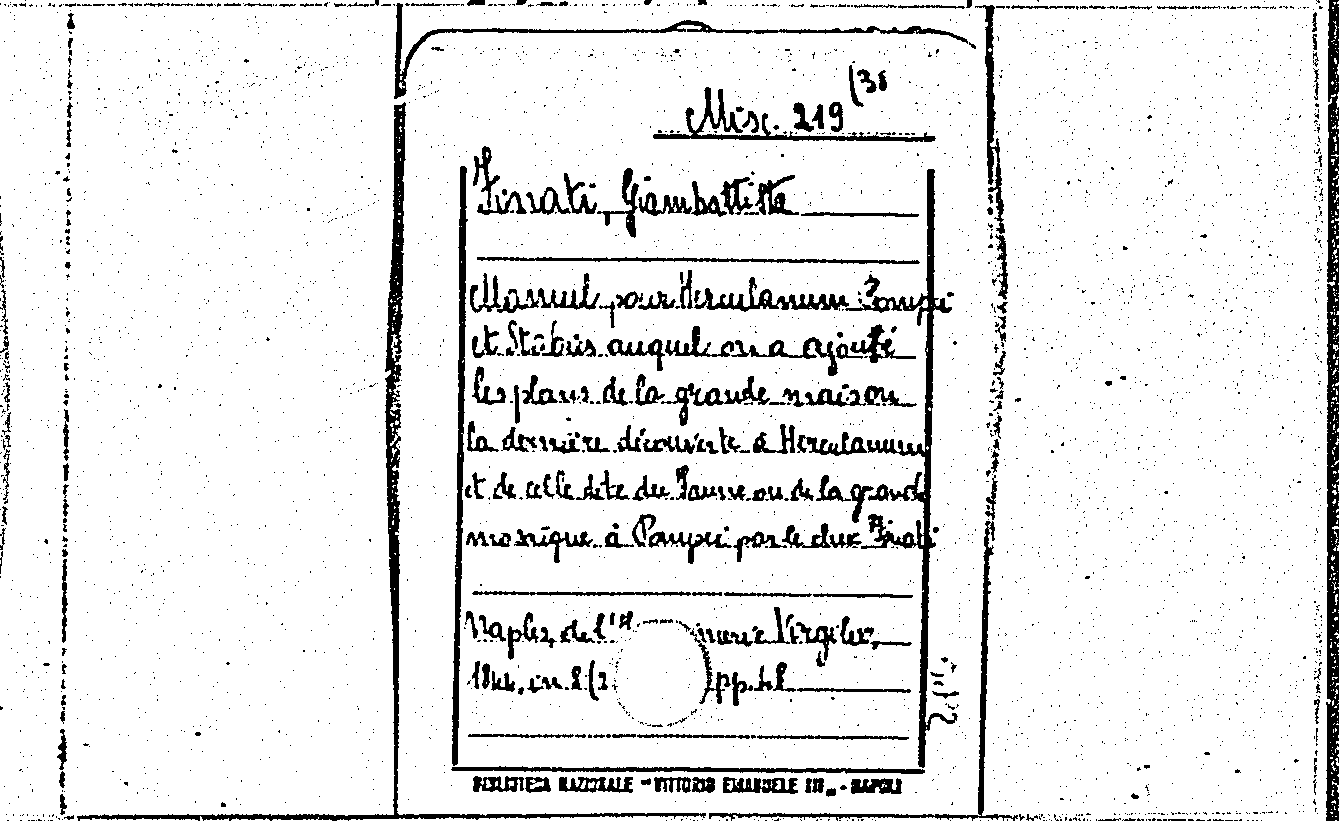 Misc. 219 (38
Finati, Giambattista
Manuel pour Herculanum Pompei
et Stabies auquel on a ajouté
les plans de la grande maison
la dernière découverte à Herculanum
et de celle dite du Faune ou de la grande
mosaique à Pompei par le chev. Finati
Naples, de l'I merie Virgile,
1844, in 8 (2 pp. 48
BIBLIOTECA NAZIONALE "VITTORIO EMANUELE III" - NAPOLI